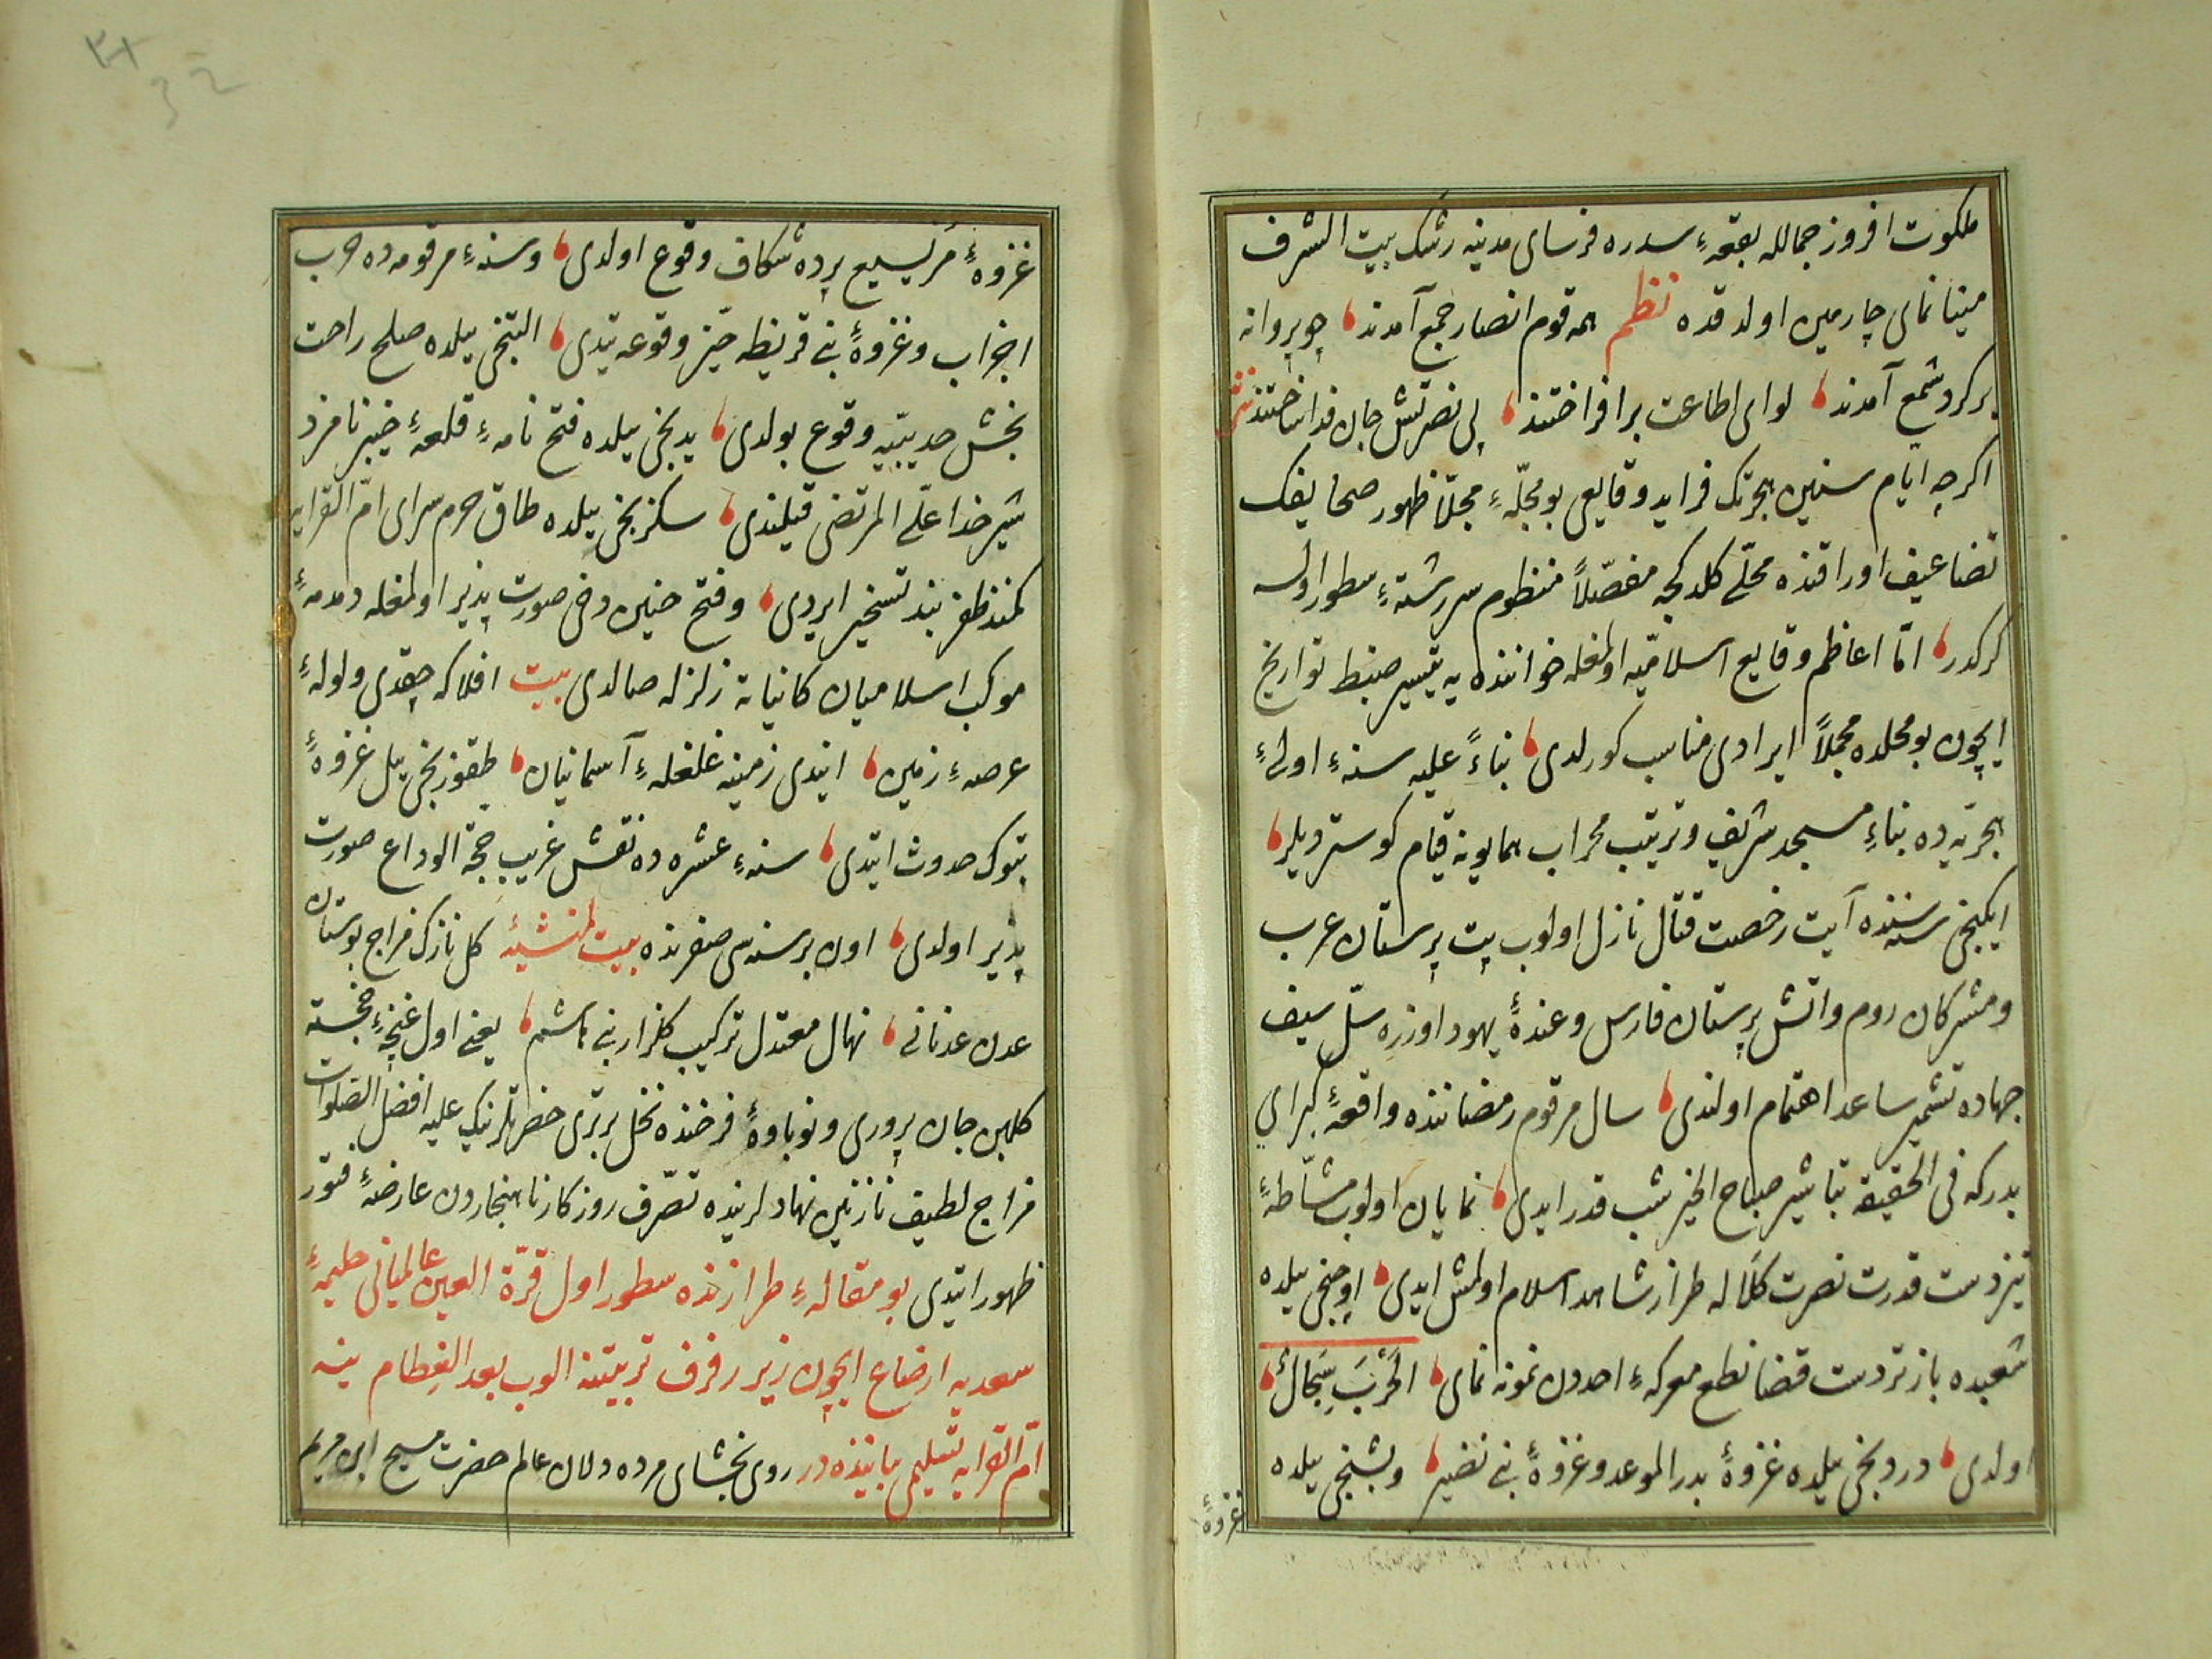 ملكوت افروز جمالله بقعۀ سدره فرسای مدینه رشك بیت الشرف
مینا نمای چارمین اولدقده نظم همه قوم انصار جمع آمدند چو پروانه
بركرد شمع آمدند لوای اطاعت برافراختند پی نصرتش جان فدا ساختند نثر
اكرچه ایام سنین هجرتك فراید وقایعی بو مجلّۀ مجلّا ظهور صحایفك
تضاعیف اوراقنده محلّی كلدكجه مفصّلاً منظوم سررشتۀ سطور اولسه
كركدر امّا اعاظم وقایع اسلامیّه اولمغله خواننده یه تیسیر ضبط تواریخ
ایچون بو محلده مجملاً ایرادی مناسب كورلدی بناءً علیه سنۀ اولیٔ
هجرتده بناءِ مسجد شریف وترتیب محراب همایونه قیام كوستردیلر
ایكنجی سنه سنده آیت رخصت قتال نازل اولوب بت پرستان عرب
ومشركان روم واتش پرستان فارس وعندۀ یهود اوزره سلّ سیف
جهاده تشمیر ساعد اهتمام اولندی سال مرقوم رمضاننده واقعۀ كبرای
بدركه فی الحقیقه تباشیر صباح الخیر شب قدر ایدی نمایان اولوب مشّاطۀ
تیز دست قدرت نصرت كلاله طراز شاهد اسلام اولمش ایدی اوچنجی ییلده
شعبده باز تردست قضا نطع معركۀ احدون نمونه نمای الحَرْبَ سِجَالٌ
اولدی دردنجی ییلده غزوۀ بدر الموعد وغزوۀ بنی نضیر وبشنجی ییلده
غزوۀ
غزوۀ مُرَیسیع پرده شكاف وقوع اولدی وسنۀ مرقومه ده حرب
احزاب وغزوۀ بنی قریظه حیّز وقوعه یتدی التنجی ییلده صلح راحت
بخش حدیبیّه وقوع بولدی یدنجی ییلده فتح نامۀ قلعۀ خیبر نامزد
شیر خدا علّی المرتضی قیلندی سكزنجی ییلده طاق حرم سرای امّ القرایه
كمند ظفر بند تسخیر ایردی وفتح حنین دخی صورت پذیر اولمغله دمدمۀ
موكب اسلامیان كانیانه زلزله صالدی بیت افلاكه چقدی ولولۀ
عرصۀ زمین ایندی زمینه غلغلۀ آسمانیان طقوزنجی ییل غزوۀ
تبوك حدوث ایتدی سنۀ عشره ده نقش غریب حجّة الوداع صورت
پذیر اولدی اون بر سنه سی صفرنده بیت لمنشیه كل نازك مزاج بوستان
عدن عدنانی نهال معتدل تركیب كلزار بنی هاشم یعنی اول غنچۀ خجسته
كلبن جان پروری ونوباوۀ فرخنده نخل برتری حضرتلرینك علیه افضل الصلوات
مزاج لطیف نازنین نهادلرنده تصرّف روزكار ناهنجاردن عارضۀ فتور
ظهور ایتدی بو مقالۀ طرازنده سطور اول قرّة العین عالمیانی حلیمۀ
سعدیه ارضاع ایچون زیر رفرف تربیتنه الوب بعد الفِطام ینه
امّ القرایه تسلیمی بابنده در روی بخشای مرده دلان عالم حضرت مسیح ابن مریم